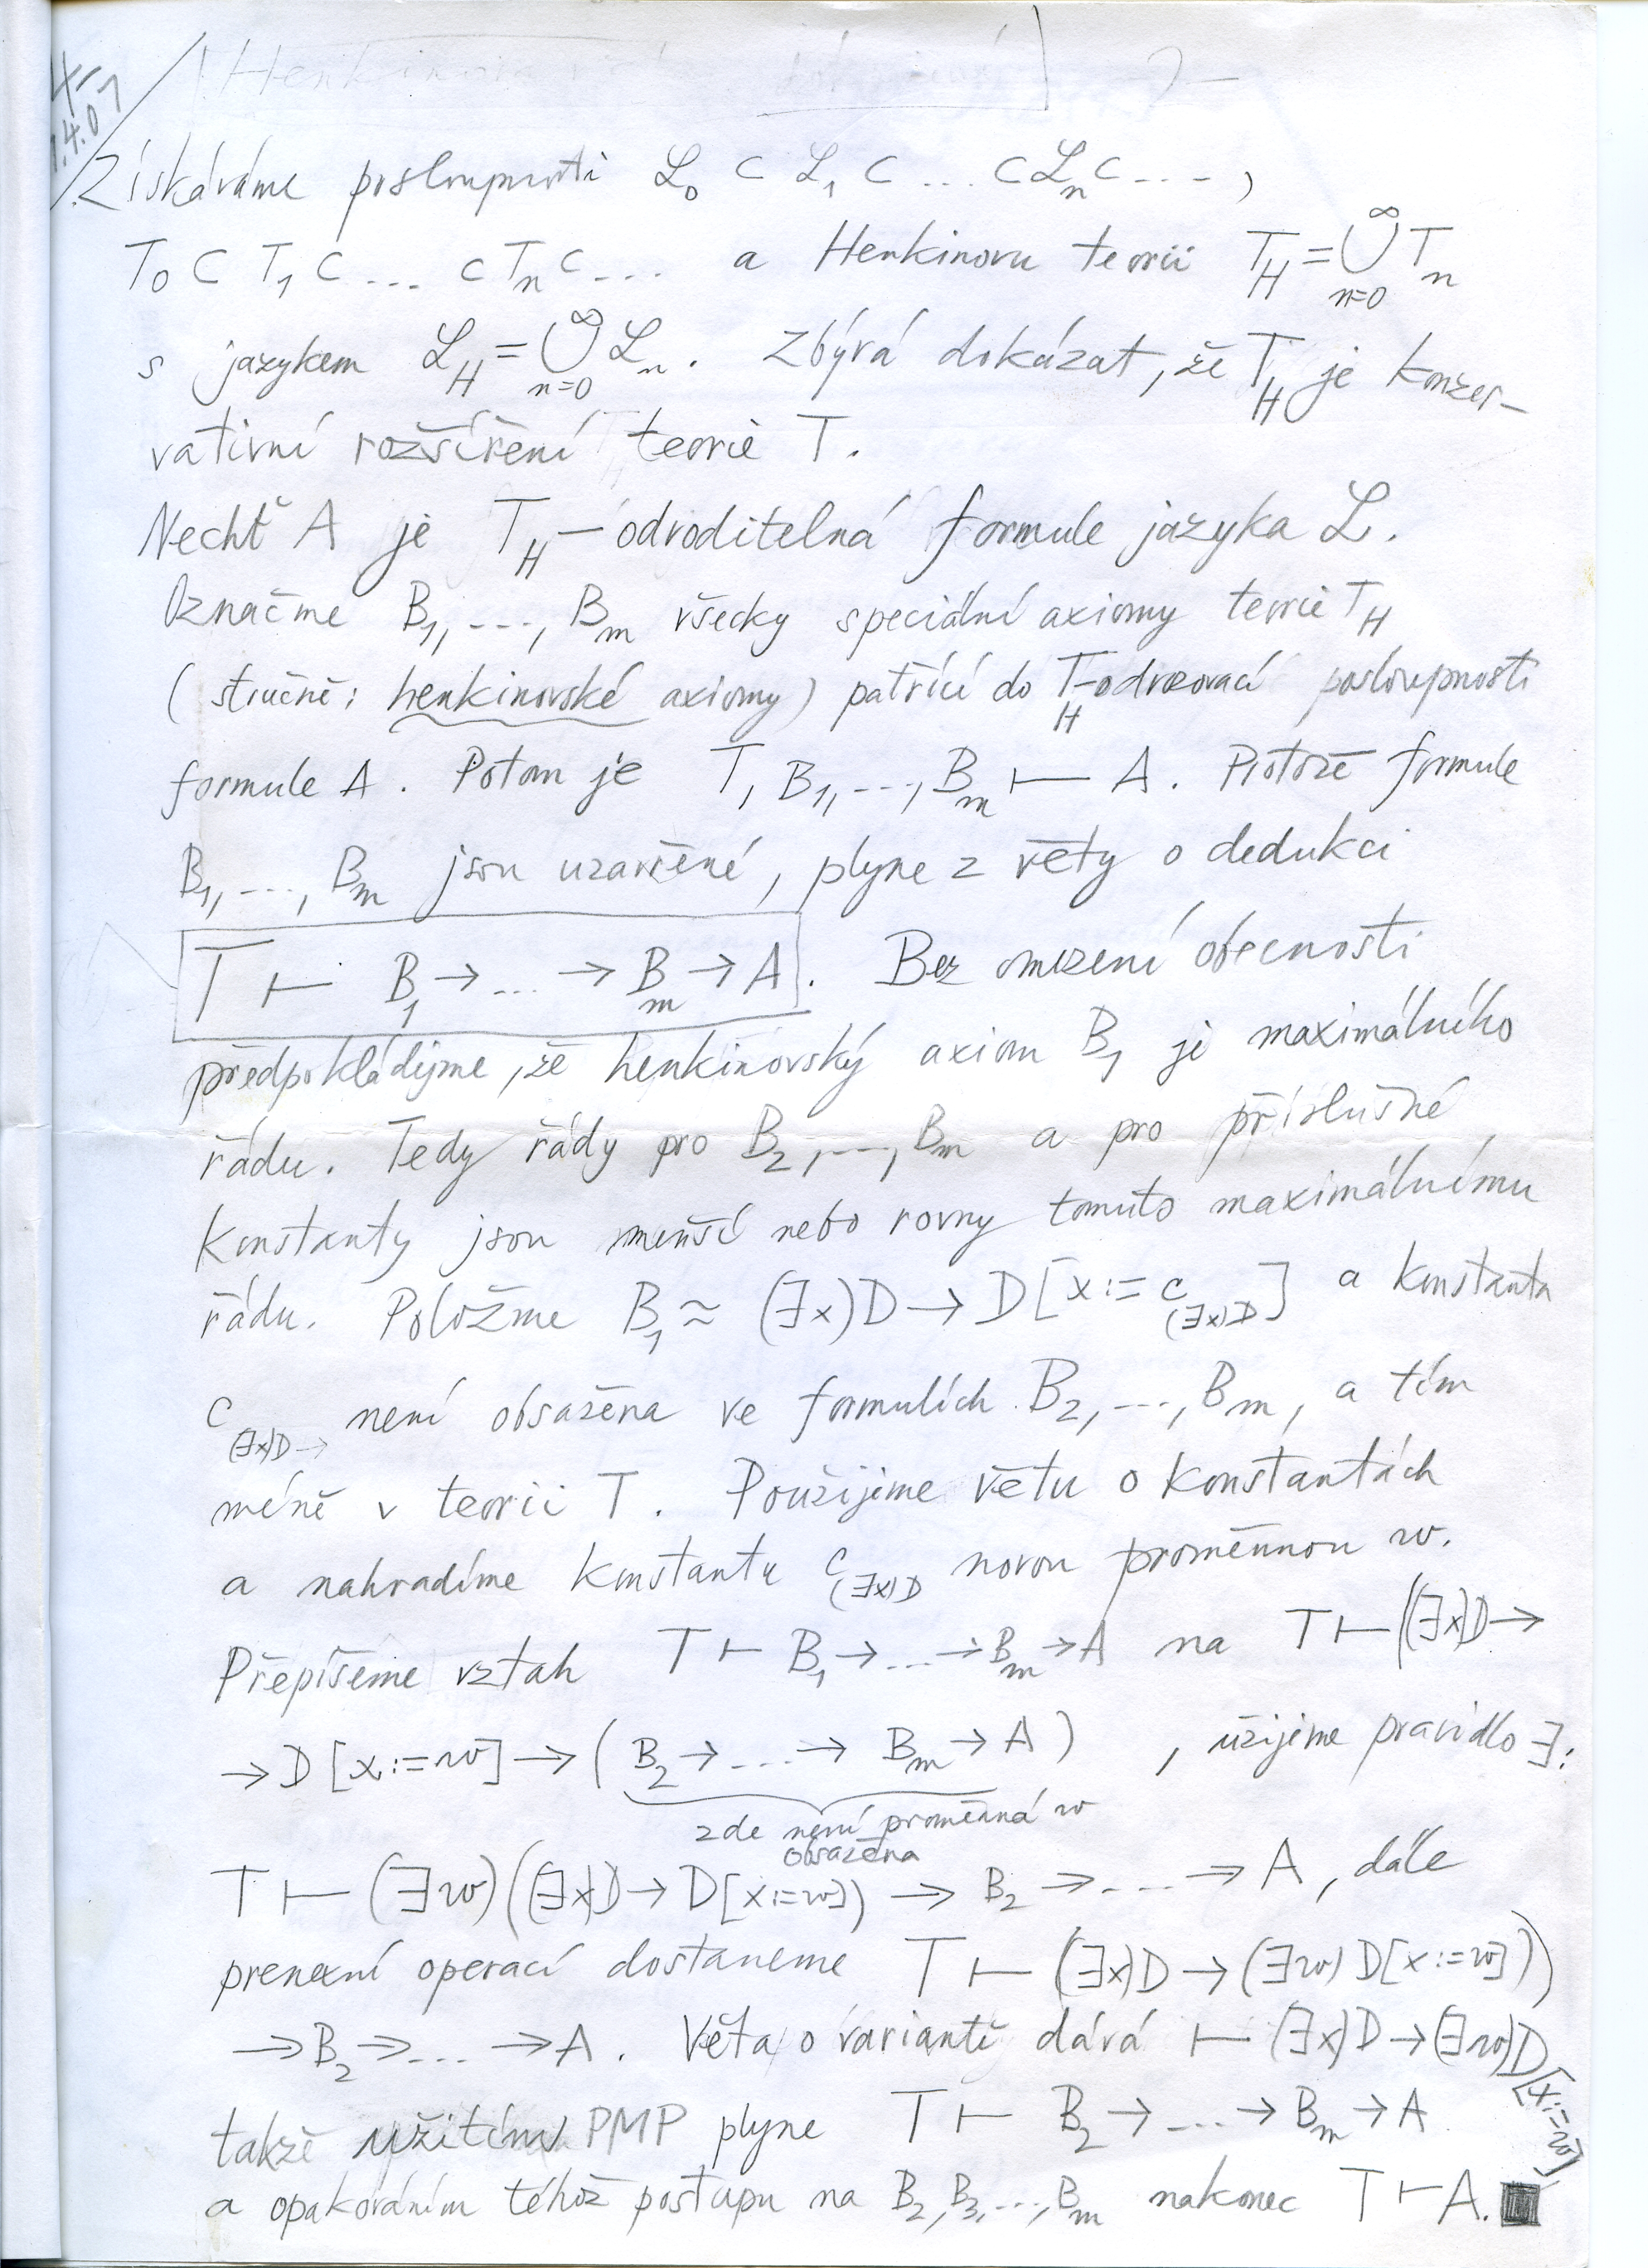 [Henkinova
-4-
1.4.07
Získáváme posloupnosti ℒ₀ ⊂ ℒ₁ ⊂ ... ⊂ ℒₙ ⊂ ... ,
T₀ ⊂ T₁ ⊂ ... ⊂ Tₙ ⊂ ... a Henkinovu teorii T_H = ⋃_{n=0}^∞ Tₙ
s jazykem ℒ_H = ⋃_{n=0}^∞ ℒₙ. Zbývá dokázat, že T_H je konzer-
vativní rozšíření teorie T.
Nechť A je T_H–odvoditelná formule jazyka ℒ.
Označme B₁, ..., Bₘ všecky speciální axiomy teorie T_H
(stručně: henkinovské axiomy) patřící do T_H–odvozovací posloupnosti
formule A. Potom je T, B₁, ..., Bₘ ⊢ A. Protože formule
B₁, ..., Bₘ jsou uzavřené, plyne z věty o dedukci
T ⊢ B₁ → ... → Bₘ → A. Bez omezení obecnosti
předpokládejme, že henkinovský axiom B₁ je maximálního
řádu. Tedy řády pro B₂, ..., Bₘ a pro příslušné
konstanty jsou menší nebo rovny tomuto maximálnímu
řádu. Položme B₁ ≈ (∃x)D → D[x := c_{(∃x)D}] a konstanta
c_{(∃x)D →} není obsažena ve formulích B₂, ..., Bₘ, a tím
méně v teorii T. Použijeme větu o konstantách
a nahradíme konstantu c_{(∃x)D} novou proměnnou w.
Přepíšeme vztah T ⊢ B₁ → ... → Bₘ → A na T ⊢ ((∃x)D →
→ D[x := w] → (B₂ → ... → Bₘ → A) , užijeme pravidlo ∃:
zde není proměnná w
obsažena
T ⊢ (∃w)((∃x)D → D[x := w]) → B₂ → ... → A, dále
prenexní operací dostaneme T ⊢ (∃x)D → (∃w) D[x := w])
→ B₂ → ... → A. Věta o variantě dává ⊢ (∃x)D → (∃w)D[x := w],
takže užitím PMP plyne T ⊢ B₂ → ... → Bₘ → A
a opakováním téhož postupu na B₂, B₃, ..., Bₘ nakonec T ⊢ A. ■